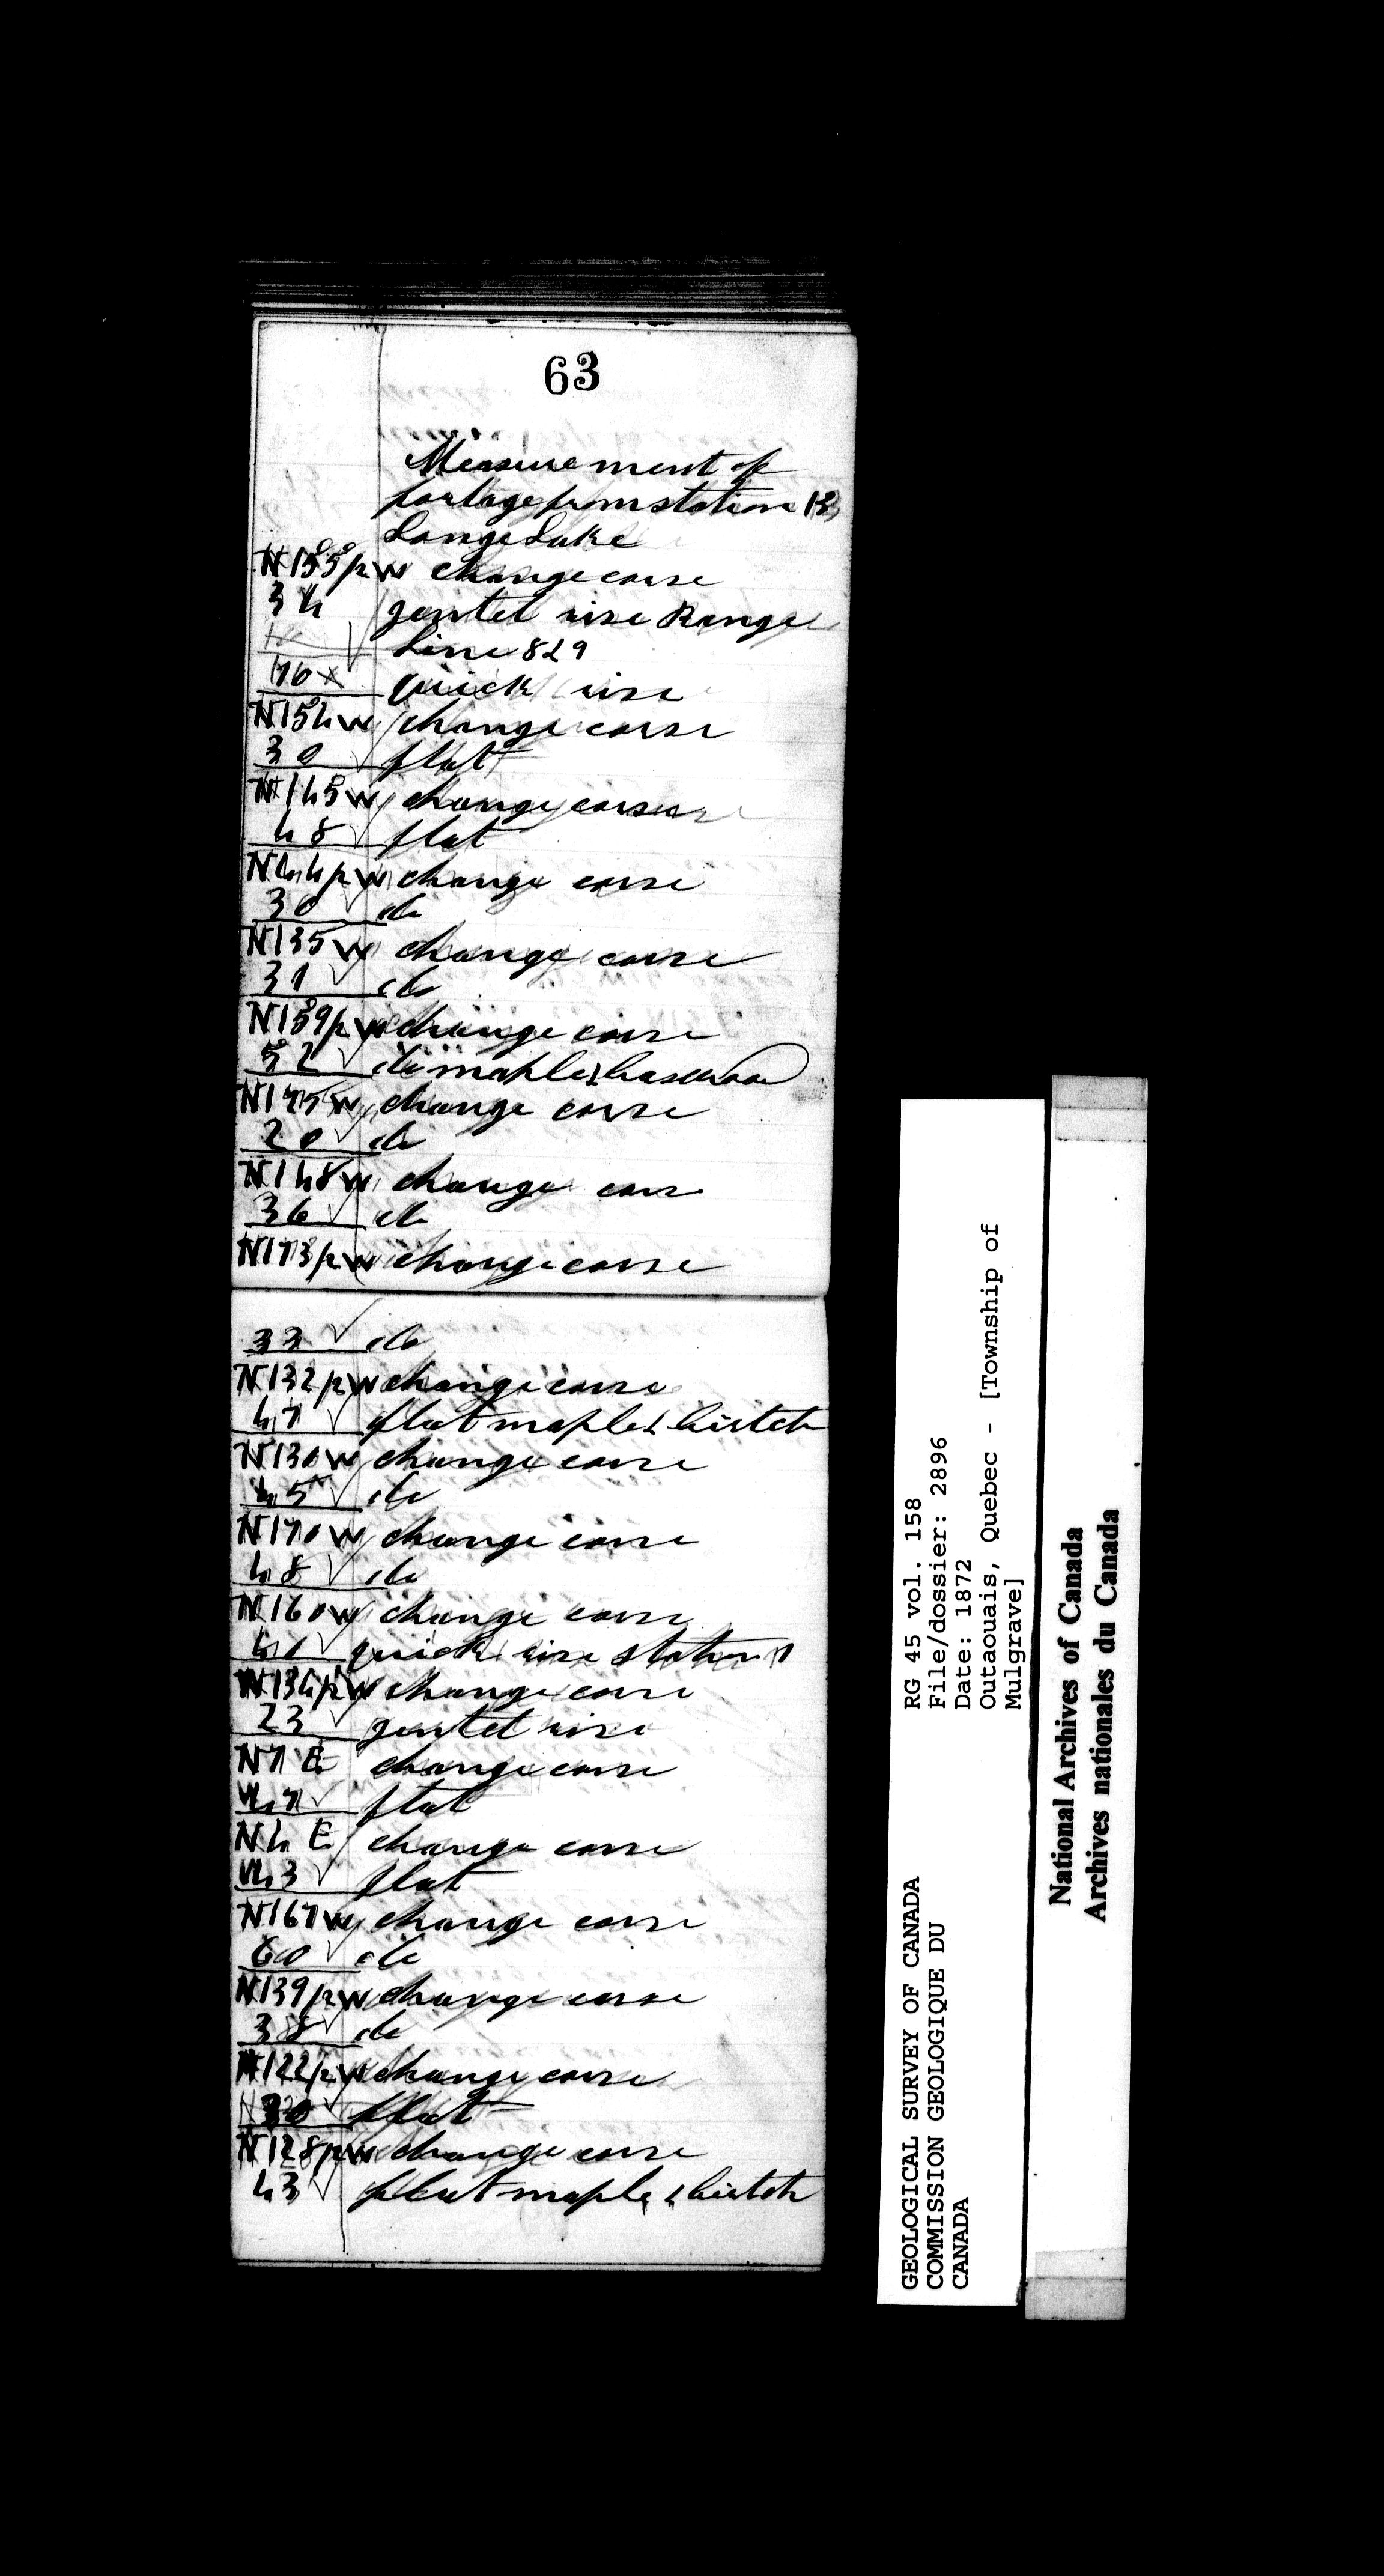 63
Measurement of
portage from station 13
Longe Lake
N 155 ½ W change corse
34 gentel rise Range
Line 8 & 9
76 x quick rise
N 154 W change corse
30 ✓ flat
N 145 W change corse
48 ✓ flat
N 44 ½ W change corse
30 ✓ do
N 135 W change corse
31 ✓ do
N 159 ½ W change corse
52 ✓ do maple & baswood
N 175 W change corse
20 ✓ do
N 148 W change cors
36 ✓ do
N 173 ½ W change corse
33 ✓ do
N 132 ½ W change corse
47 ✓ flat maple & birtch
N 130 W change corse
45 ✓ do
N 170 W change corse
48 ✓ do
N 160 W change corse
40 ✓ quick rise station 1
N 134 ½ W change corse
23 ✓ gentel rise
N 7 E change corse
47 ✓ flat
N 4 E change corse
43 ✓ flat
N 167 W change corse
60 ✓ do
N 139 ½ W change corse
38 ✓ do
N 122 ½ W change corse
30 ✓ flat
N 128 ½ W change corse
43 ✓ flat maple & birtch
GEOLOGICAL SURVEY OF CANADA
COMMISSION GEOLOGIQUE DU
CANADA
RG 45 vol. 158
File/dossier: 2896
Date: 1872
Outaouais, Quebec - [Township of
Mulgrave]
National Archives of Canada
Archives nationales du Canada